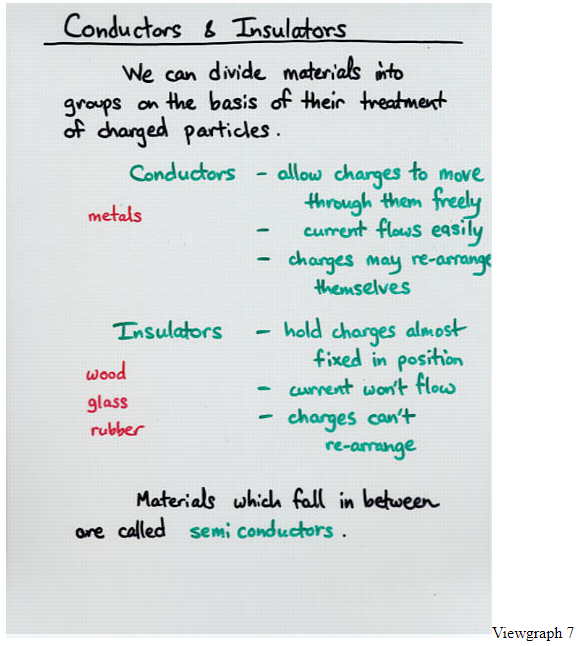 Conductors & Insulators
We can divide materials into
groups on the basis of their treatment
of charged particles.
Conductors - allow charges to move
through them freely
metals
- current flows easily
- charges may re-arrange
themselves
Insulators - hold charges almost
fixed in position
wood
- current won't flow
glass
- charges can't
rubber
re-arrange
Materials which fall in between
are called semi conductors.
Viewgraph 7